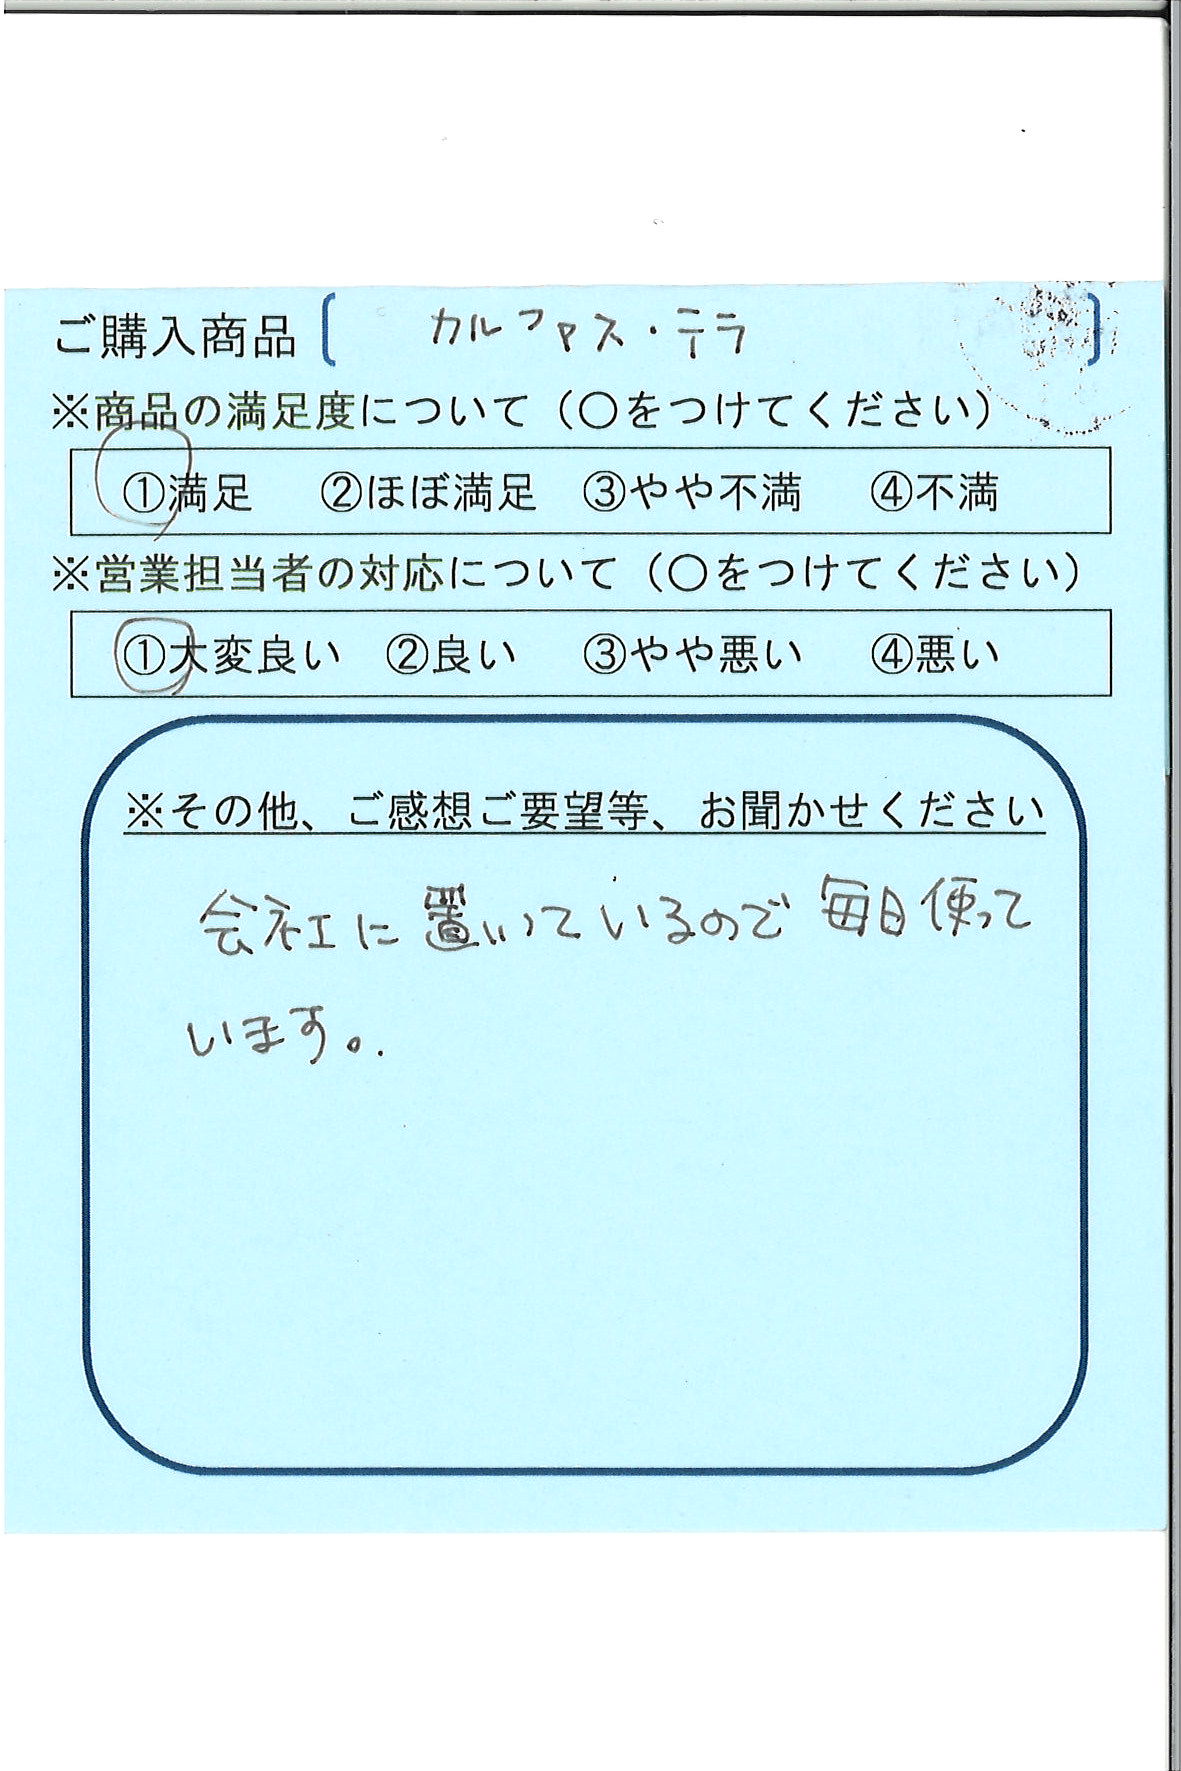 ご購入商品〔 カルファス・テラ 〕
※商品の満足度について（○をつけてください）
①満足 ②ほぼ満足 ③やや不満 ④不満
※営業担当者の対応について（○をつけてください）
①大変良い ②良い ③やや悪い ④悪い
※その他、ご感想ご要望等、お聞かせください
会社に置いているので毎日使って
います。